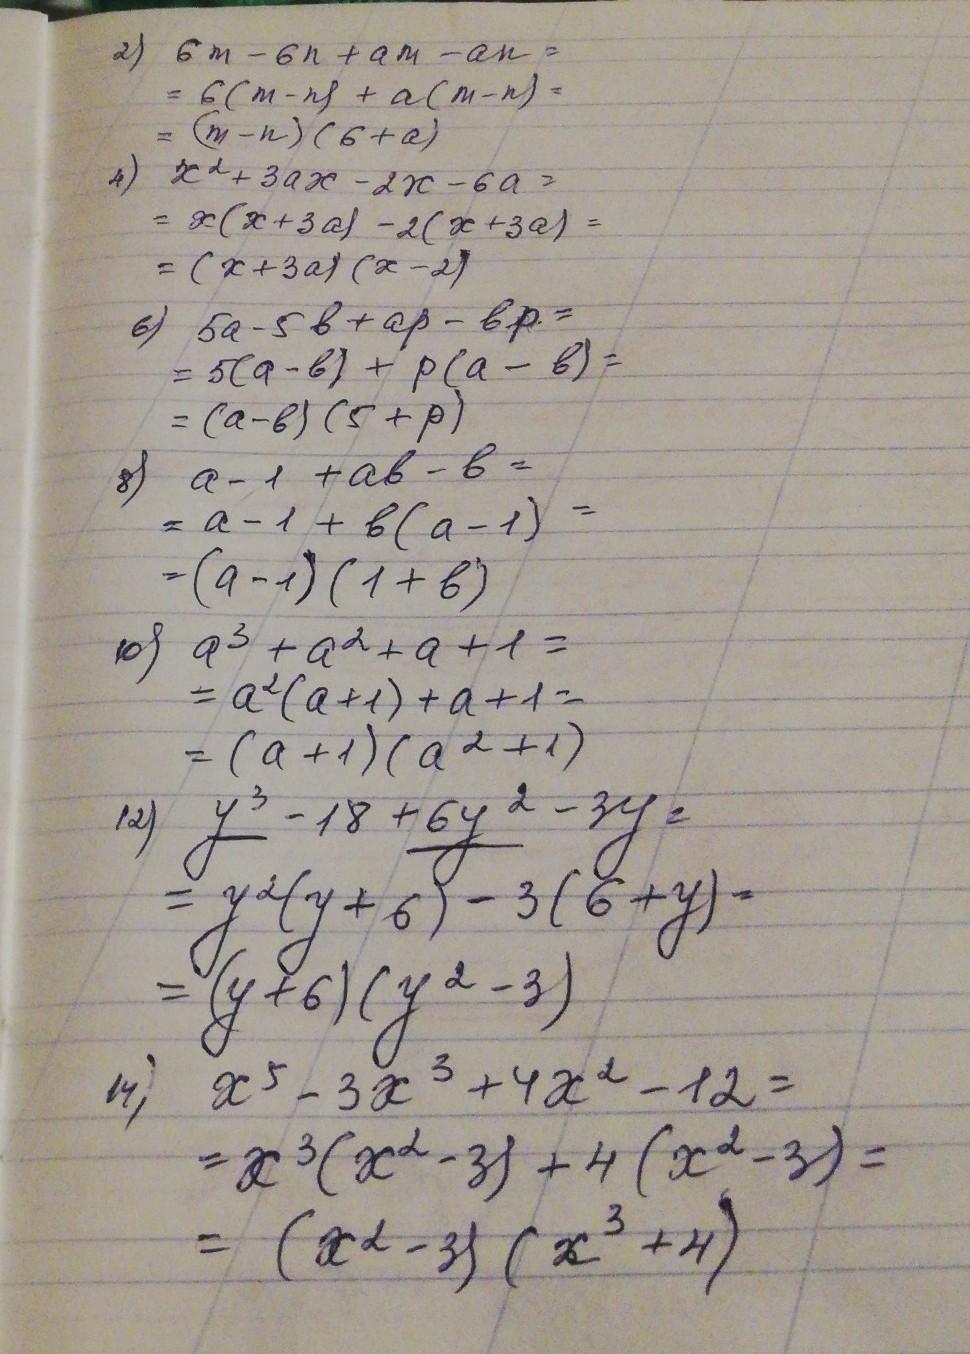 2) 6m - 6n + am - an =
= 6(m-n) + a(m-n) =
= (m-n)(6+a)
4) x² + 3ax - 2x - 6a =
= x(x+3a) - 2(x+3a) =
= (x+3a)(x-2)
6) 5a - 5в + ap - вp =
= 5(a-в) + p(a-в) =
= (a-в)(5+p)
8) a - 1 + aв - в =
= a - 1 + в(a-1) =
= (a-1)(1+в)
10) a³ + a² + a + 1 =
= a²(a+1) + a + 1 =
= (a+1)(a²+1)
12) y³ - 18 + 6y² - 3y =
= y²(y+6) - 3(6+y) =
= (y+6)(y²-3)
14) x⁵ - 3x³ + 4x² - 12 =
= x³(x²-3) + 4(x²-3) =
= (x²-3)(x³+4)